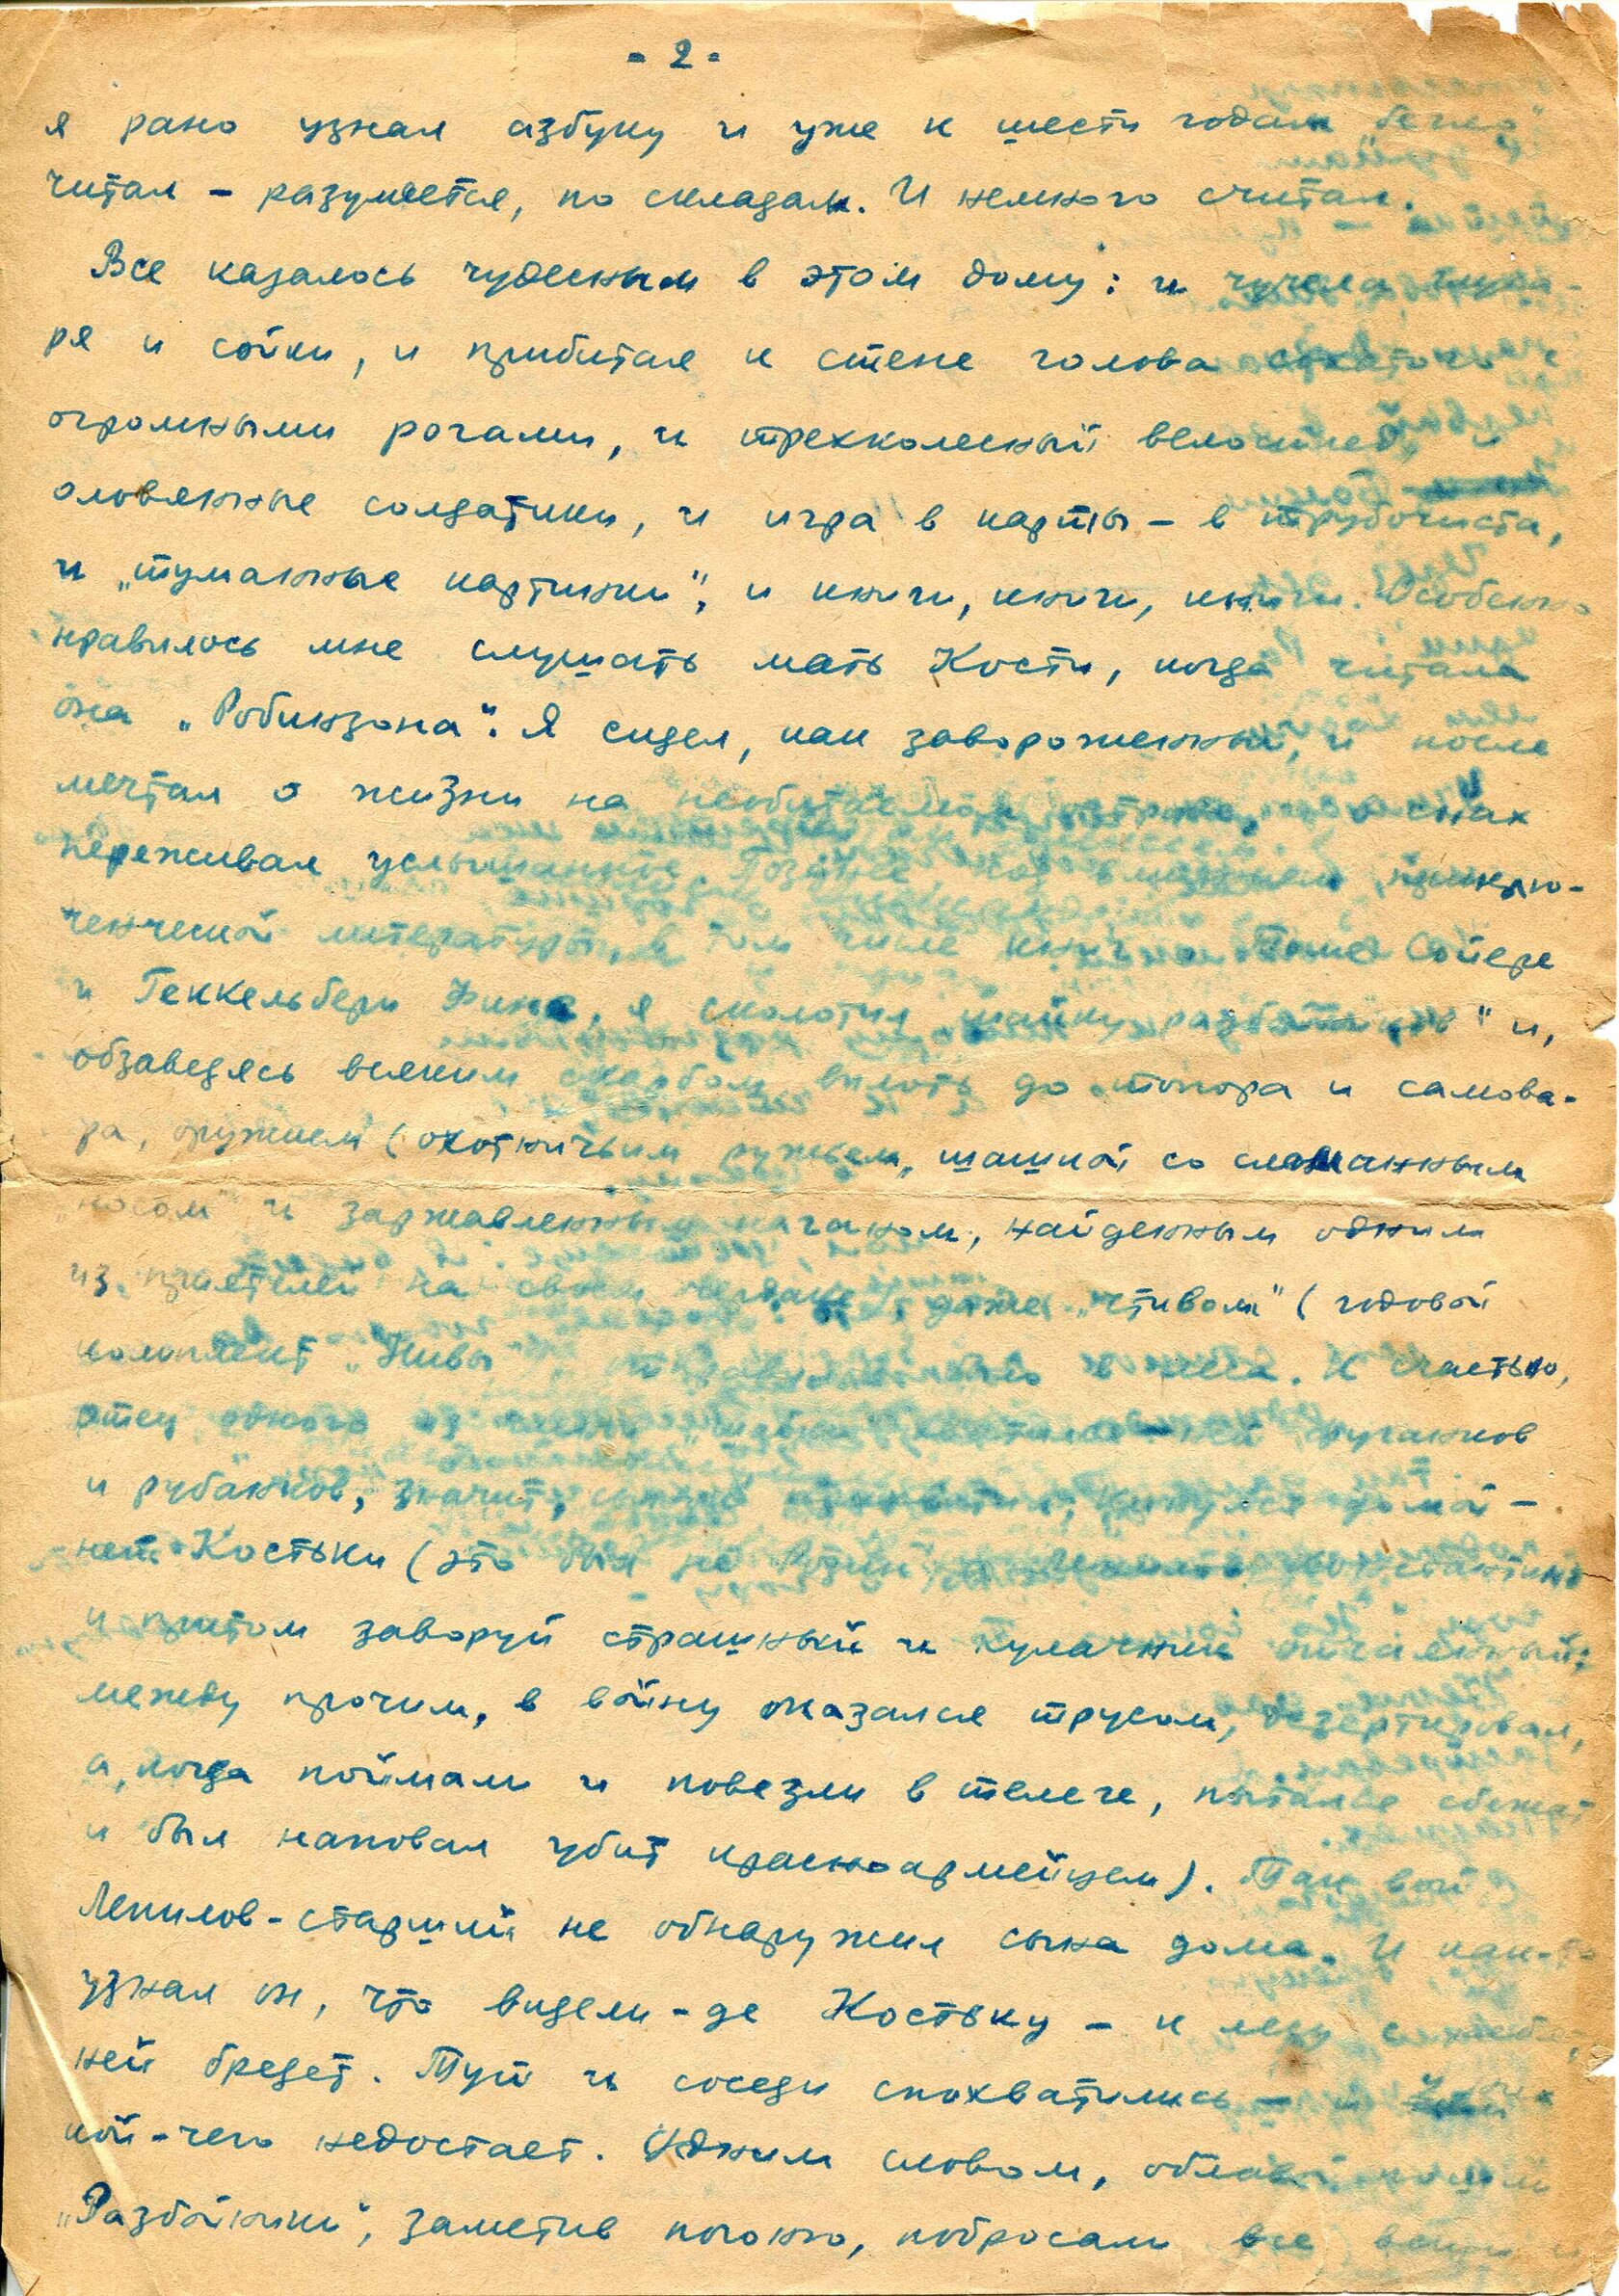 - 2 -
я рано узнал азбуку и уже к шести годам „бегло"
читал – разумеется, по складам. И немного считал.
Все казалось чудесным в этом дому: и чучела глуха-
ря и сойки, и прибитая к стене голова сохатого с
огромными рогами, и трехколесный велосипед, и
оловянные солдатики, и игра в карты – в трубочиста,
и „туманные картинки", и книги, книги, книги. Особенно
нравилось мне слушать мать Кости, когда читала
она „Робинзона". Я сидел, как завороженный, и после
мечтал о жизни на необитаемом острове, и в снах
переживал услышанное. Позднее, под влиянием приклю-
ченческой литературы, в том числе книг о Томе Сойере
и Геккельбери Финне, я сколотил „шайку разбойников" и,
обзаведясь всяким скарбом вплоть до топора и самова-
ра, оружием (охотничьим ружьем, шашкой со сломанным
„носом" и заржавленным наганом, найденным одним
из приятелей на своем чердаке), даже „чтивом" (годовой
комплект „Нивы"), в леса. К счастью,
отец одного из „шайки" хватился – ни фуганков
и рубанков, значит, кинулся домой –
нет Костьки (это был не Константин
и притом заворуй страшный и кулачник отчаянный;
между прочим, в войну оказался трусом, дезертировал,
а, когда поймали и повезли в телеге, пытался сбежать
и был наповал убит красноармейцем). Так вот
Лепилов-старший не обнаружил сына дома. И как-то
узнал он, что видели-де Костьку – к лесу с
ней бредет. Тут и соседи спохватились – и у них
кой-чего недостает. Одним словом, облава
„Разбойники", заметив погоню, побросали все вещи и